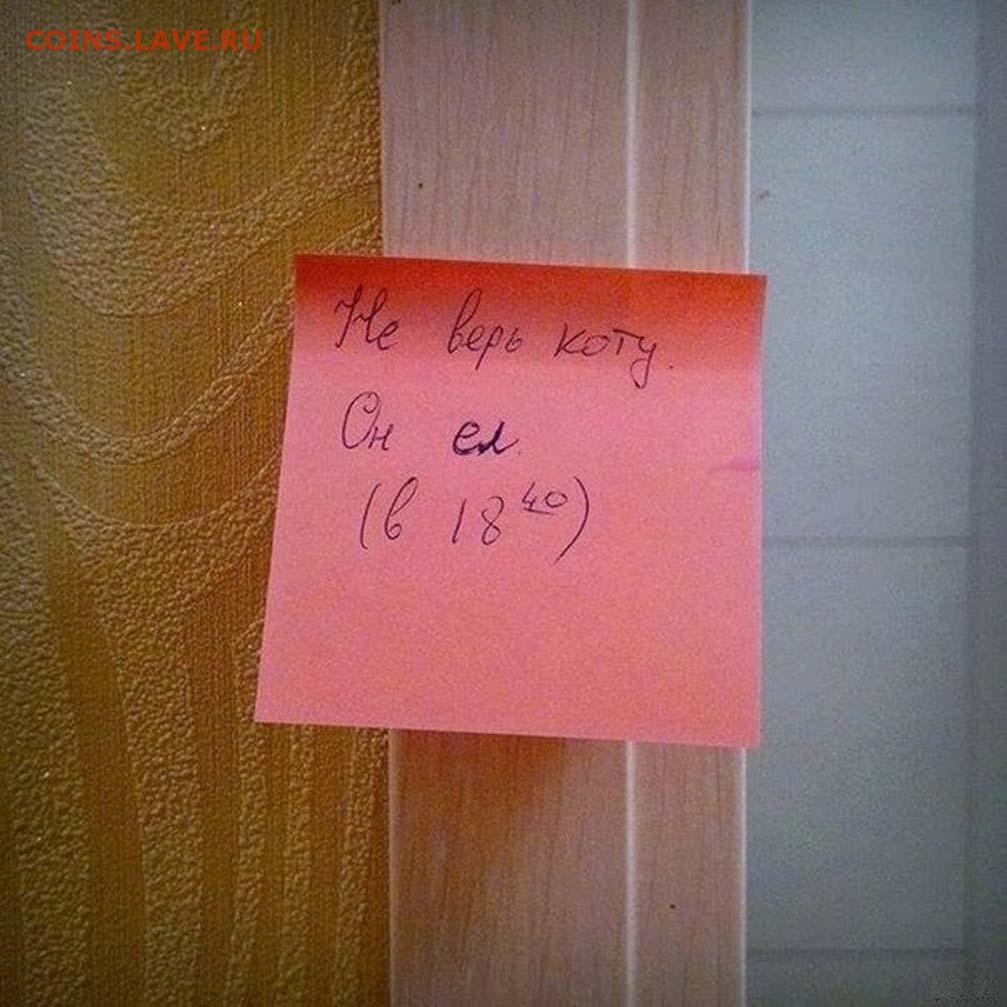 COINS.LAVE.RU
Не верь коту.
Он ел.
(в 18 40)